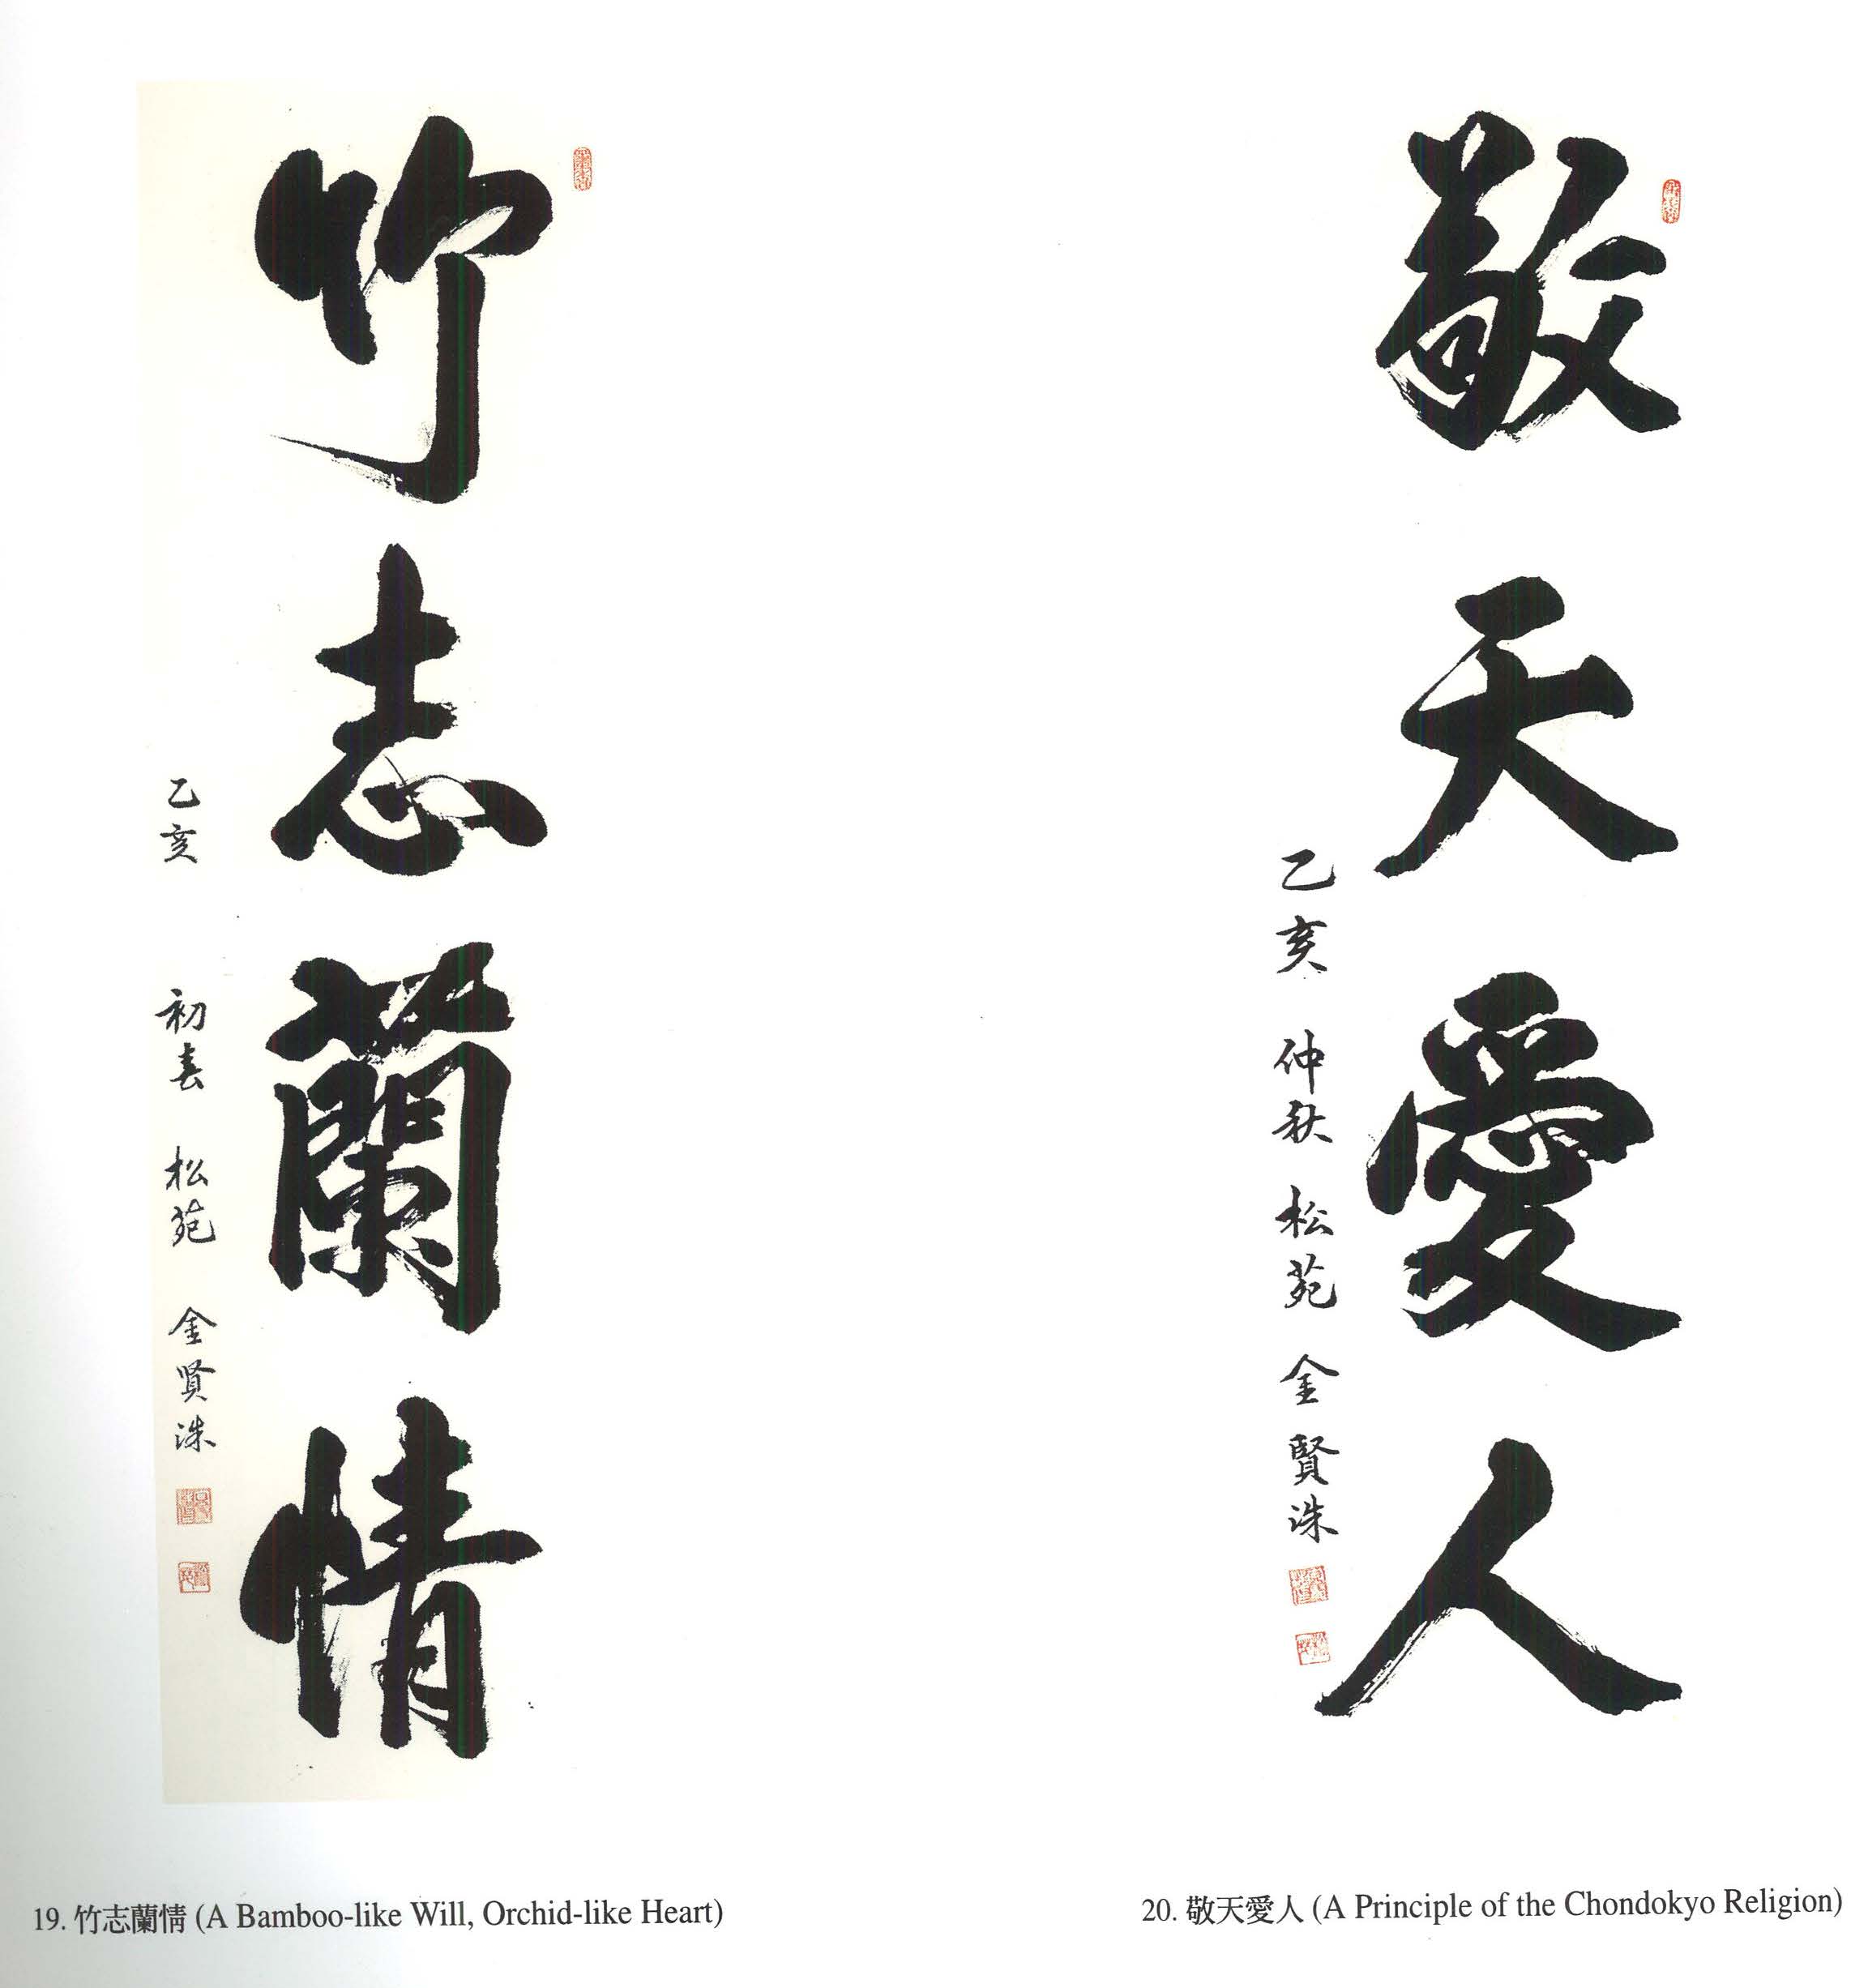 竹志蘭情
乙亥 初春 松苑 金賢洙
19. 竹志蘭情 (A Bamboo-like Will, Orchid-like Heart)
敬天愛人
乙亥 仲秋 松苑 金賢洙
20. 敬天愛人 (A Principle of the Chondokyo Religion)